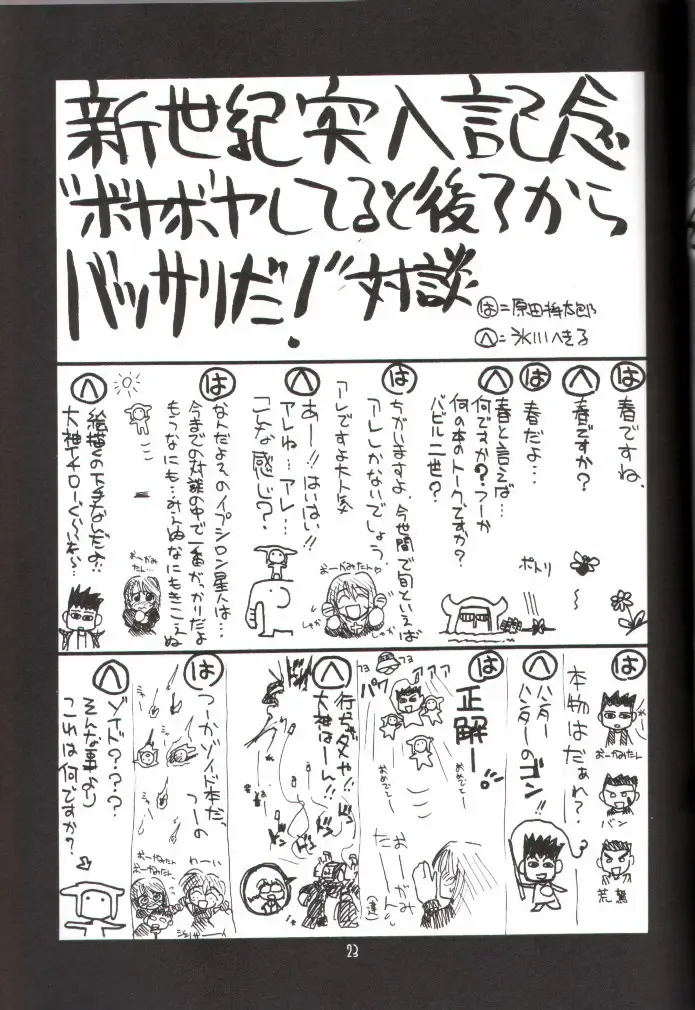 新世紀突入記念
"ボヤボヤしてると後ろから
バッサリだ!"対談
は=原田将太郎
へ=氷川へきる
は
春ですね。
へ
春ですか?
は
春だよ…
へ
春と言えば…
何ですか?つーか
何の本のトークですか?
バビル二世?
ポトリ
は
ちがいますよ、今世間で旬といえば
アレしかないでしょう。
アレですよ大人気
おーかみたん♡
しゃか
しゃか
へ
あー!!はいはい!!
アレね…アレ…
こんな感じ?
は
なんだよそのイプシロン星人は…
今までの対談の中で一番がっかりだよ
もうなにも…みえぬなにもきこえぬ
おーかみ
たん…
へ
絵描くの下手なんだよ…
大神イチローぐらいなら〜…
は
本物はだぁれ?
おーかみたん
バン
荒鷲
へ
ハンター
ハンターのゴン!!
は
正解ー。
パアアアア
おめでとー
おめでとー
おーかみ
たーん
へ
行っちゃダメや!!
大神はーん!!
は
つーかゾイド本だっ
つーの
おーかみたん
おーかみたん
わーい
へ
ゾイド???
そんな事より
これは何ですか?
23